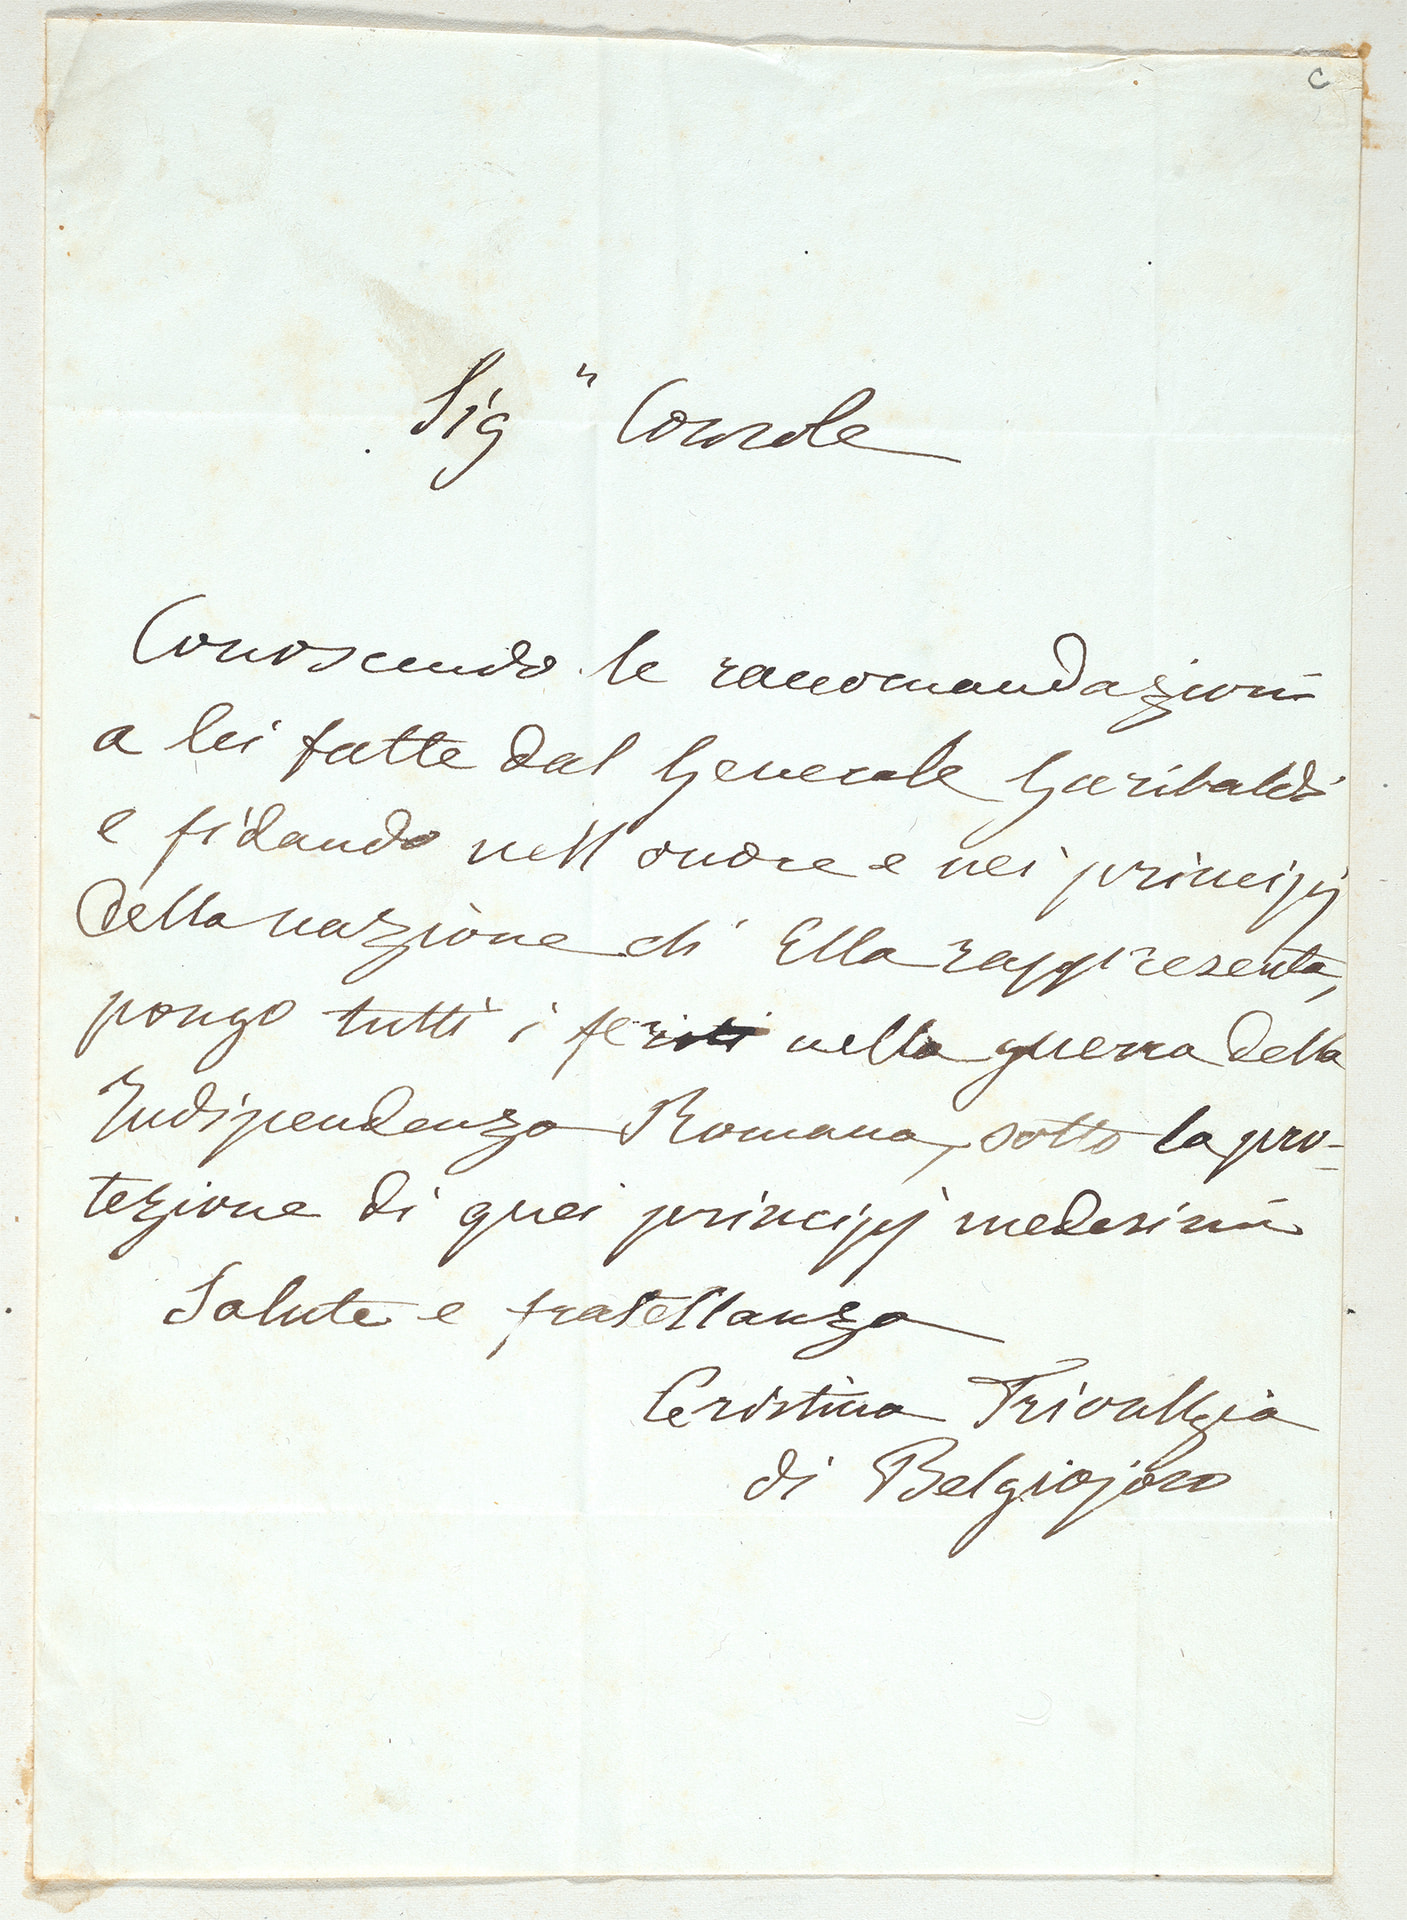 C
Sigr Console
Conoscendo le raccomandazioni
a lei fatte dal Generale Garibaldi
e fidando nell onore e nei principj
della nazione di Ella rappresenta,
pongo tutti i feriti nella guerra della
Indipendenza Romana, sotto la pro-
tezione di quei principj medesimi
Salute e fratellanza
Cristina Trivulzia
di Belgiojoso